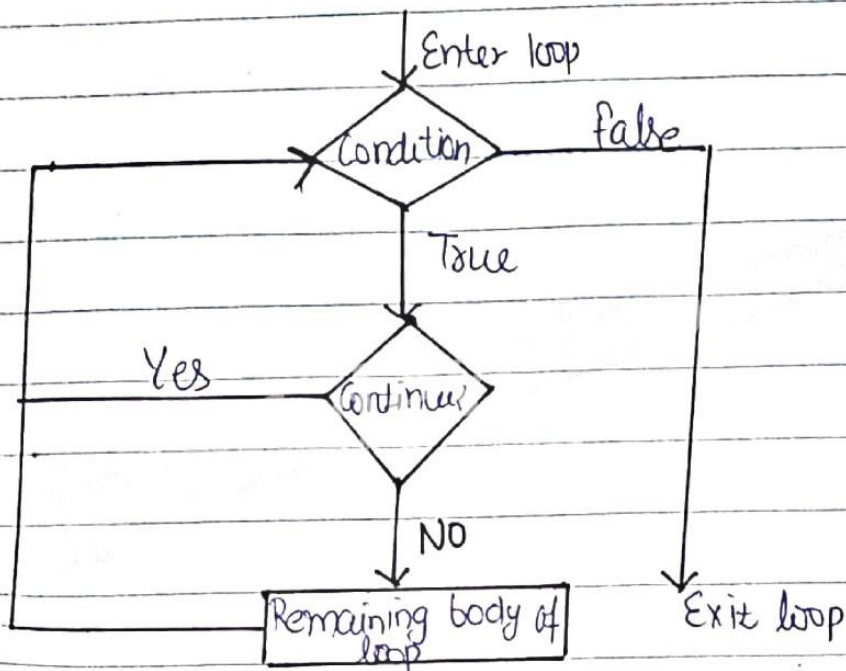 Enter loop
Condition
false
True
Yes
Continue?
NO
Remaining body of
loop
Exit loop